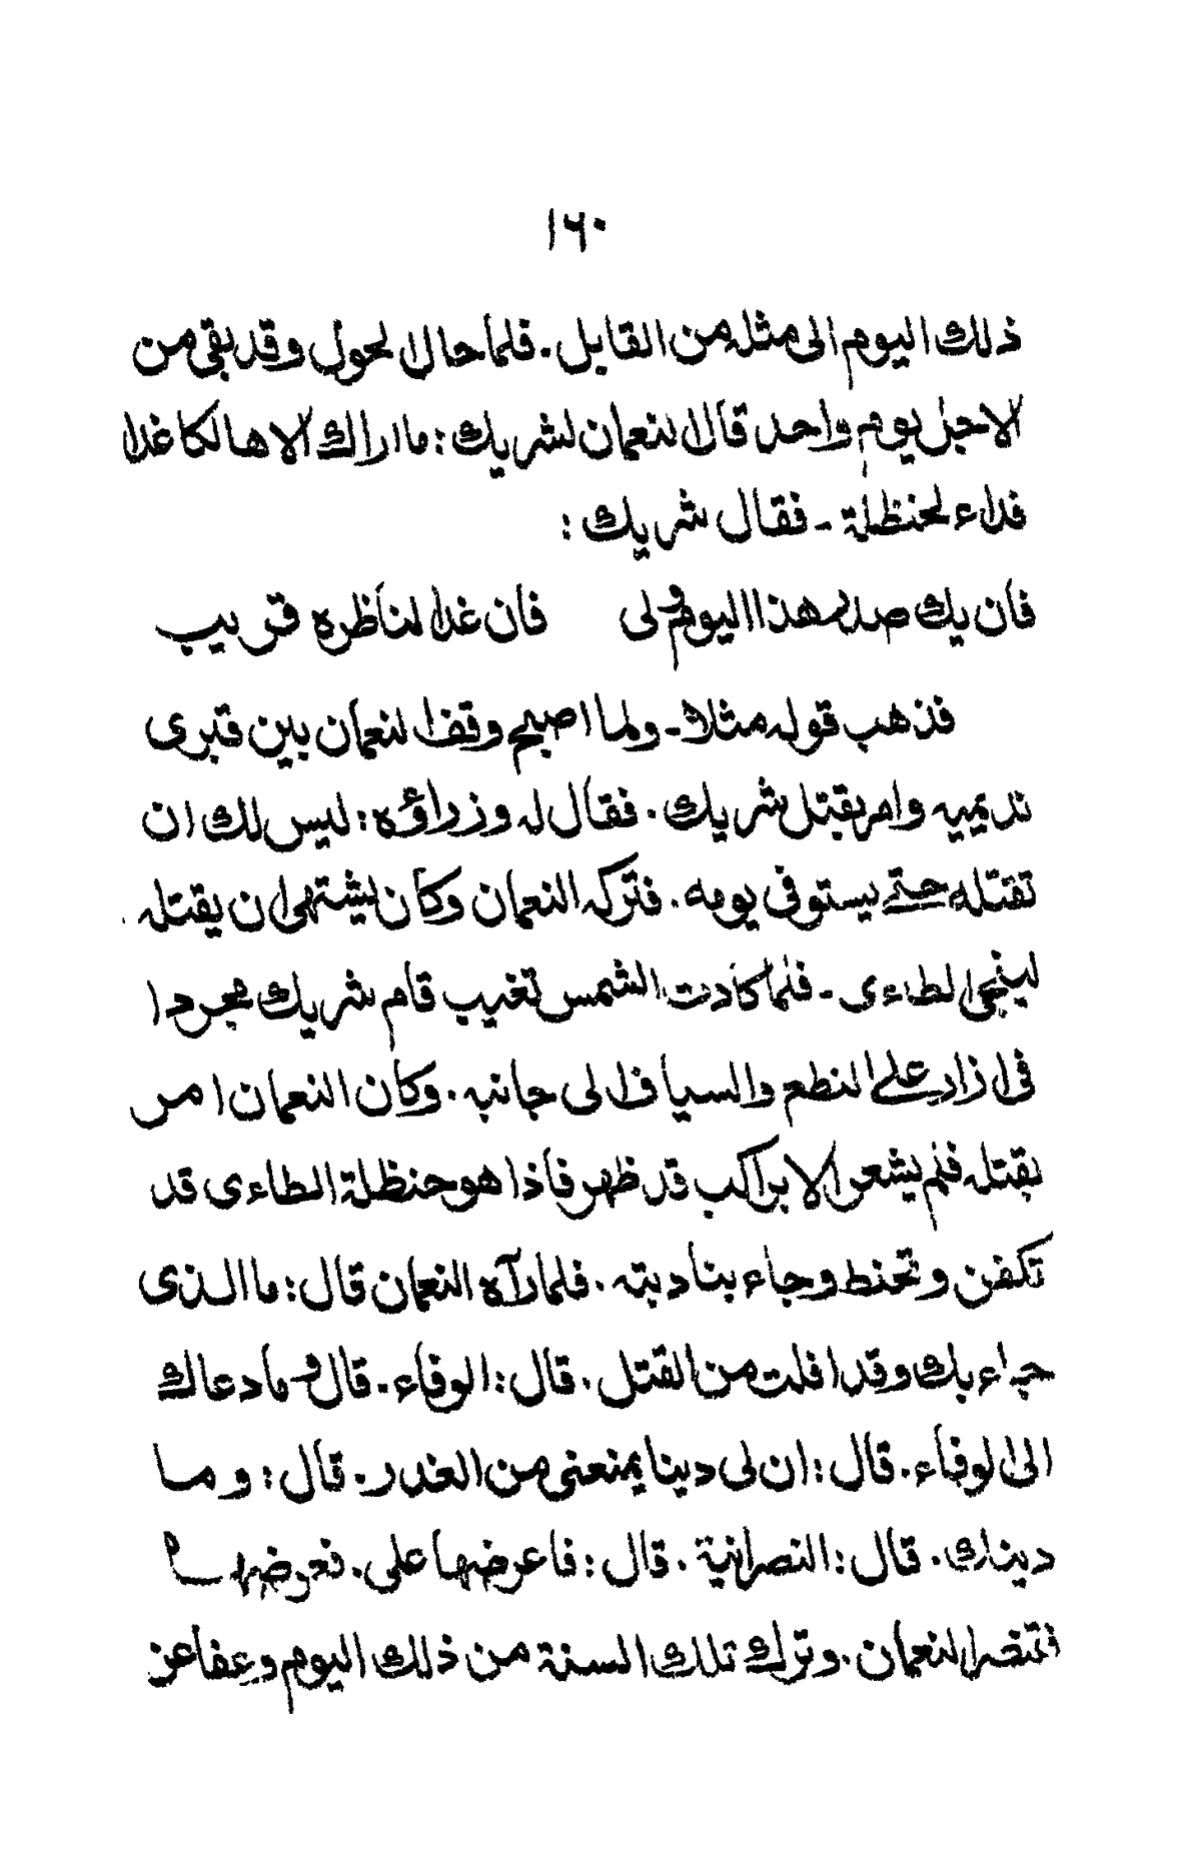 ١٦٠
ذلك اليوم الى مثله من القابل. فلما حال الحول وقد بقى من
الاجل يوم واحد قال النعمان لشريك: ما اراك الا هالكا غدا
فداء لحنظلة - فقال شريك:
فان يك صدر هذا اليوم ولى فان غدا لناظره قريب
فذهب قوله مثلا - ولما اصبح وقف النعمان بين قبرى
نديميه وامر بقتل شريك. فقال له وزراؤه: ليس لك ان
تقتله حتى يستوفى يومه. فتركه النعمان وكان يشتهى ان يقتله
لينجى الطاءى - فلما كادت الشمس تغيب قام شريك مجردا
فى ازار على النطع والسياف الى جانبه. وكان النعمان امر
بقتله فلم يشعر الا براكب قد ظهر فاذا هو حنظلة الطاءى قد
تكفن وتحنط وجاء بنادبته. فلما رآه النعمان قال: ما الذى
جاء بك وقد افلت من القتل. قال: الوفاء. قال وما دعاك
الى الوفاء. قال: ان لى دينا يمنعنى من الغدر. قال: وما
دينك. قال: النصرانية. قال: فاعرضها على. فعرضها
فتنصر النعمان. وترك تلك السنة من ذلك اليوم وعفا عن